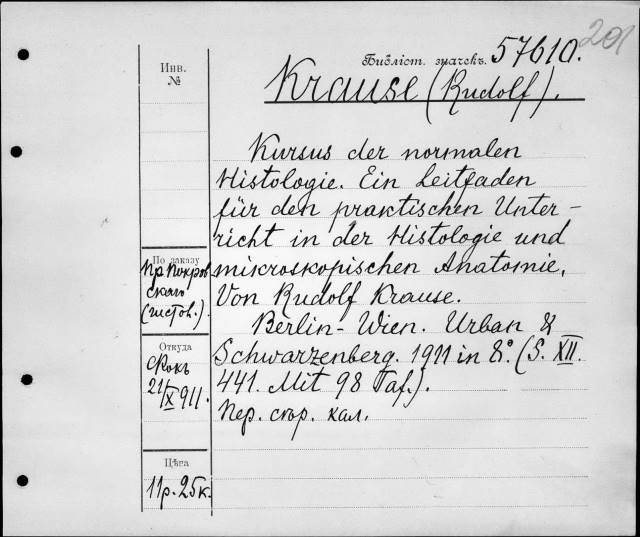 201
Библіот. значекъ. 57610.
Инв.
№
Krause (Rudolf).
Kursus der normalen
Histologie. Ein Leitfaden
für den praktischen Unter-
richt in der Histologie und
mikroskopischen Anatomie.
Von Rudolf Krause.
Berlin-Wien. Urban &
Schwarzenberg. 1911 in 8°. (S. XII.
441. Mit 98 Taf.).
Пер. скор. кал.
По заказу
Пр. Покров
скаго
(гистов.).
Откуда
Скокъ
21/X 911.
Цѣна
11р. 25к.